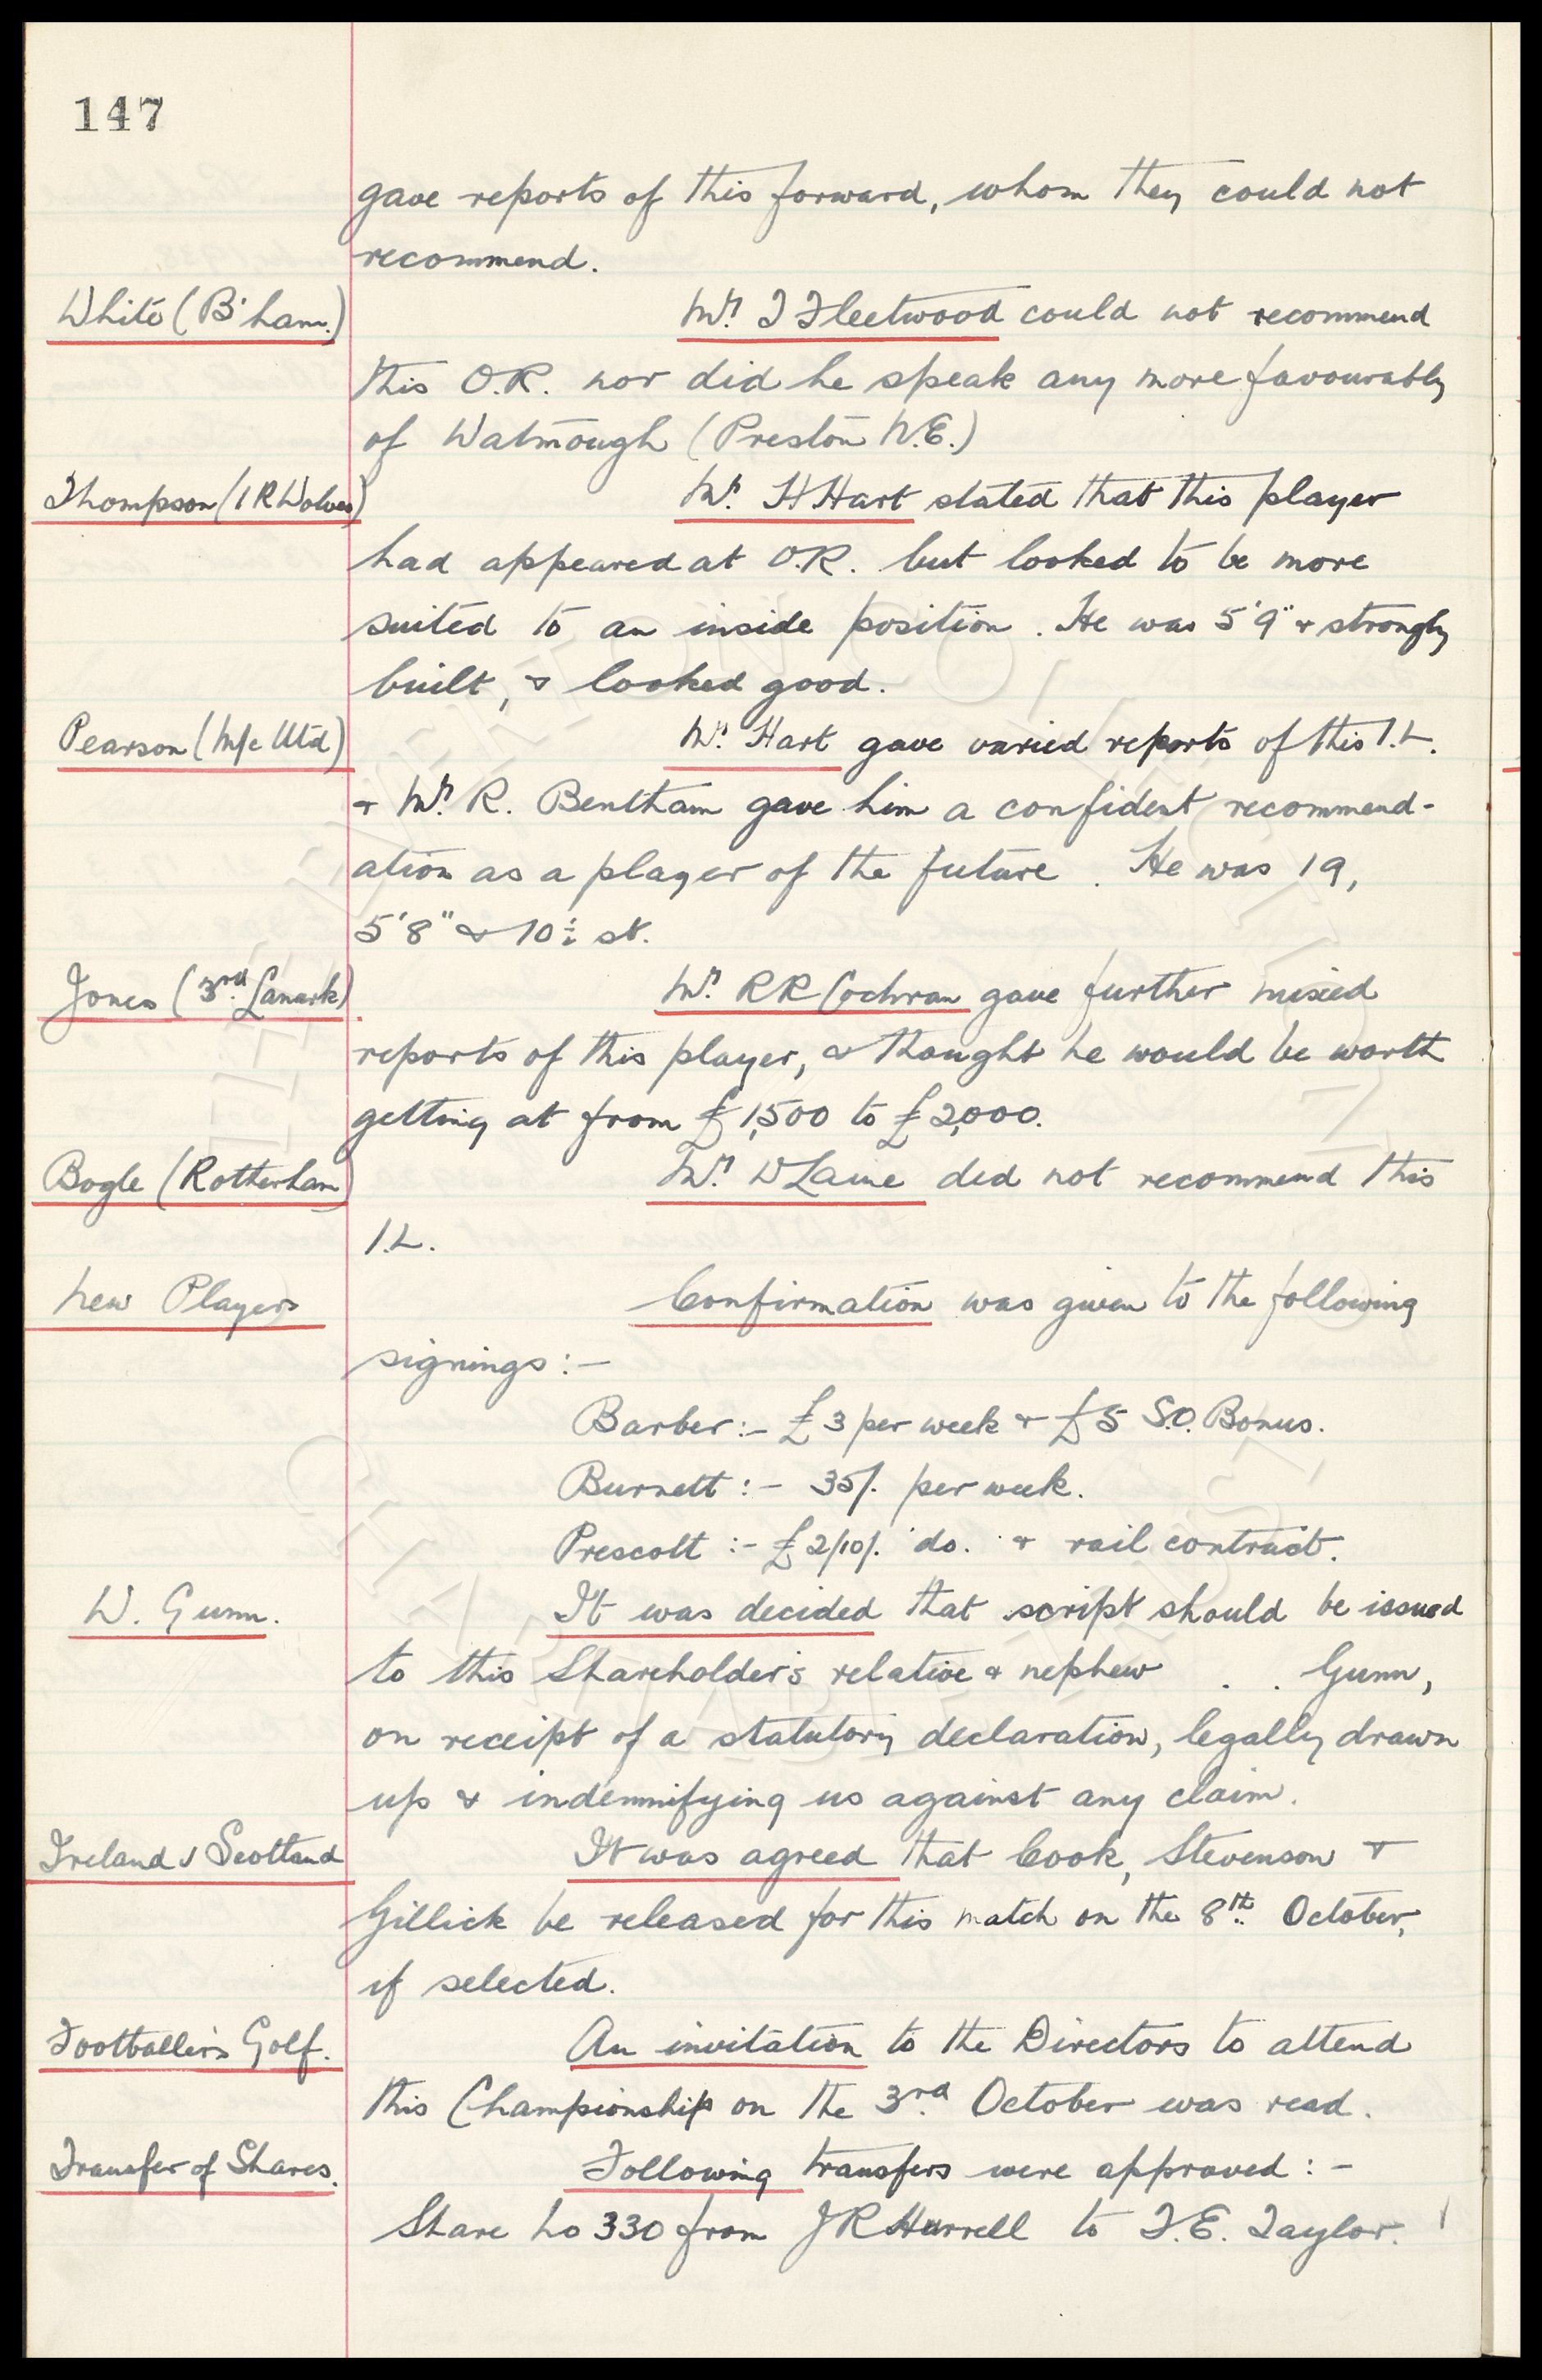 147
gave reports of this forward, whom they could not
recommend.
White (B'ham.) Mr. T Fleetwood could not recommend
this O.R. nor did he speak any more favourably
of Watmough (Preston N.E.)
Thompson (I R Wolves) Mr. H Hart stated that this player
had appeared at O.R. but looked to be more
suited to an inside position. He was 5'9" & strongly
built, & looked good.
Pearson (M/c Utd) Mr. Hart gave varied reports of this I.L.
& Mr. R. Bentham gave him a confident recommend-
ation as a player of the future. He was 19,
5'8" & 10½ st.
Jones (3rd. Lanark) Mr. RR Cochran gave further mixed
reports of this player, & thought he would be worth
getting at from £1,500 to £2,000.
Bogle (Rotherham) Mr. W Laine did not recommend this
I.L.
New Players Confirmation was given to the following
signings:-
Barber:- £3 per week & £5 S.O. Bonus.
Burnett:- 35/. per week.
Prescott:- £2/10/. do. & rail contract.
W. Gunn. It was decided that script should be issued
to this Shareholder's relative & nephew . . Gunn,
on receipt of a statutory declaration, legally drawn
up & indemnifying us against any claim.
Ireland v Scotland It was agreed that Cook, Stevenson &
Gillick be released for this match on the 8th. October,
if selected.
Footballers Golf. An invitation to the Directors to attend
this Championship on the 3rd October was read.
Transfer of Shares. Following transfers were approved:-
Share No 330 from J R Hurrell to F.E. Taylor.